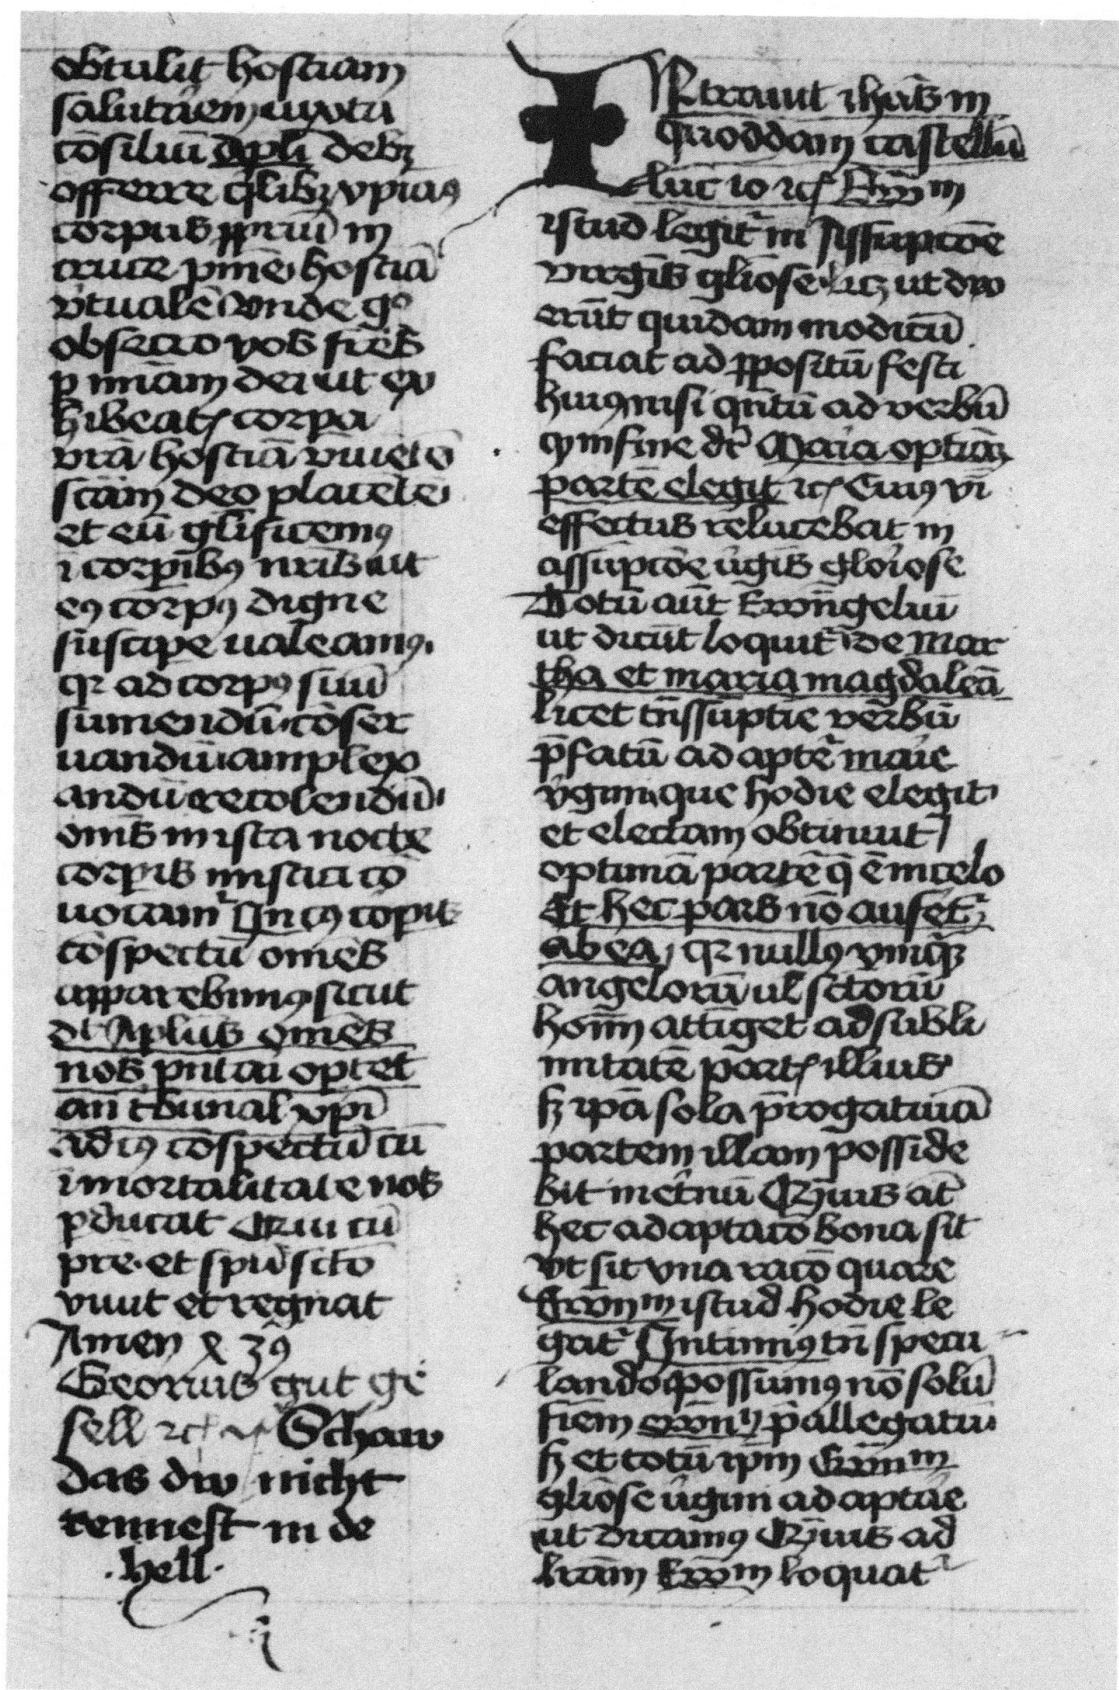 obtulit hostiam
salutarem iuxta
cōsiliū Apli debꝫ
offerre q̄libꝫ xp̄ianꝰ
corpus ꝓpriū in
cruce pnīe hostiā
vitualē vnde gͦ
obsecro vos fr̄es
p mīam dei ut ex
hibeatꝭ corpa
vrā hostiā viuētē
scām deo placētē
et eū glīficemꝰ
ī corpībꝰ nrīs ut
eꝰ corpꝰ digne
suscipe ualeamꝰ
qr ad corpꝰ suū
sumendū cōser
uandū amplex
andū recolendū
oms in ista nocte
corpis mistici cō
uocamr̄
cōspectū omēs
apparebimꝰ sicut
dt Aplus omēs
nos
an tbunal xpī
ad eiꝰ cōspectū cū
īmortalitate nos
pducat Qui cū
prē et spū scto
viuit et regnat
Amen
Georius gut ge
sell ⁊cꝭ Schaw
das dw nicht
rennest in de
hell
INtrauit ihūs in
quoddam castellū
luc 10 ⁊cꝭ Ewm
istud legitr̄ in Assūpcōe
virgīs gliōse licꝫ ut dix
erūt quidam modicū
faciat ad ꝓpositū festi
huiꝰ nisi qntū ad verbū
qͩ in fine dr̄ Maria optiāꝫ
partē elegit ⁊cꝭ Cuiꝰ vī
effectus relucebat in
assūpcōe ūgīs gloīose
Totū aūt Ewāngeliū
ut dicūt loquitr̄ de mar
tha et maria magdaleā
licet trāssūptie verbū
p̄fatū ad aptetr̄ marie
vgini que hodie elegit
et electam obtinuit
optimā partē q̄ ē in celo
Et hec pars nō aufetr̄
ab ea qr nullꝰ vmqꝫ
angelorū ul sctorū
hom̄ attīget ad subli
mitatē partꝭ illius
sꝫ ipā sola p̄rogatiuā
partem illam posside
bit in et̄nū Qmuis at
hec adaptacō bona sit
vt sit vna racō quare
Ewnm istud hodie le
gatr̄ Intimiꝰ tn̄ specu
lando possumꝰ nō solū
finē ewnij p̄allegatū
sꝫ et totū ipm̄ Ewnm
gliōse ūgini adaptāe
ut dicamꝰ Qmuis ad
lrām Ewm loquatr̄